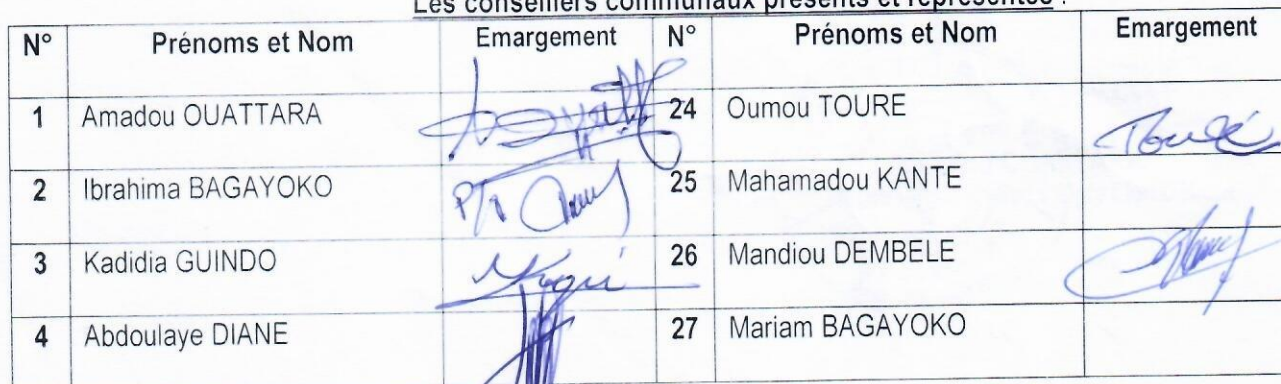 Les conseillers communaux présents et représentés :
N° Prénoms et Nom Emargement N° Prénoms et Nom Emargement
1 Amadou OUATTARA 24 Oumou TOURE Touré
2 Ibrahima BAGAYOKO P/ 25 Mahamadou KANTE
3 Kadidia GUINDO 26 Mandiou DEMBELE
4 Abdoulaye DIANE 27 Mariam BAGAYOKO